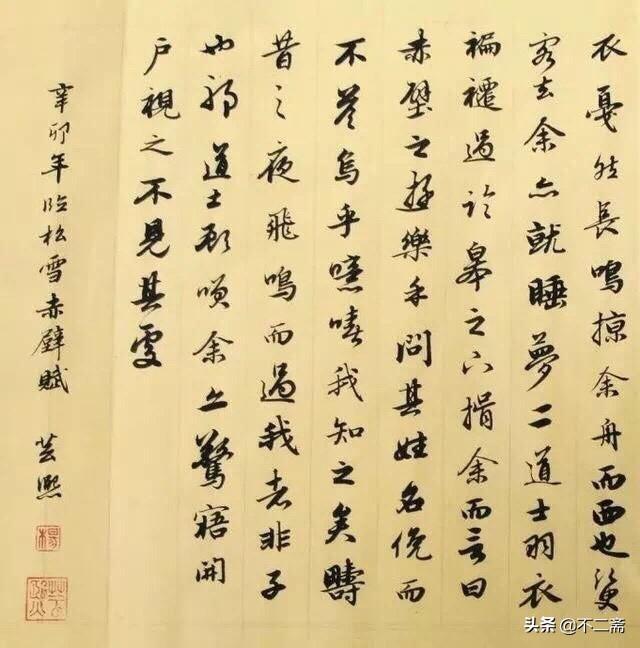 衣戛然長鳴掠余舟而西也須臾
客去余亦就睡夢二道士羽衣
褊褼過臨皋之下揖余而言曰
赤壁之遊樂乎問其姓名俛而
不荅烏乎噫嘻我知之矣疇
昔之夜飛鳴而過我者非子
也耶道士顧咲余亦驚寤開
户視之不見其處
辛卯年臨松雪赤壁賦 芸熙
楊
头条 @不二斋